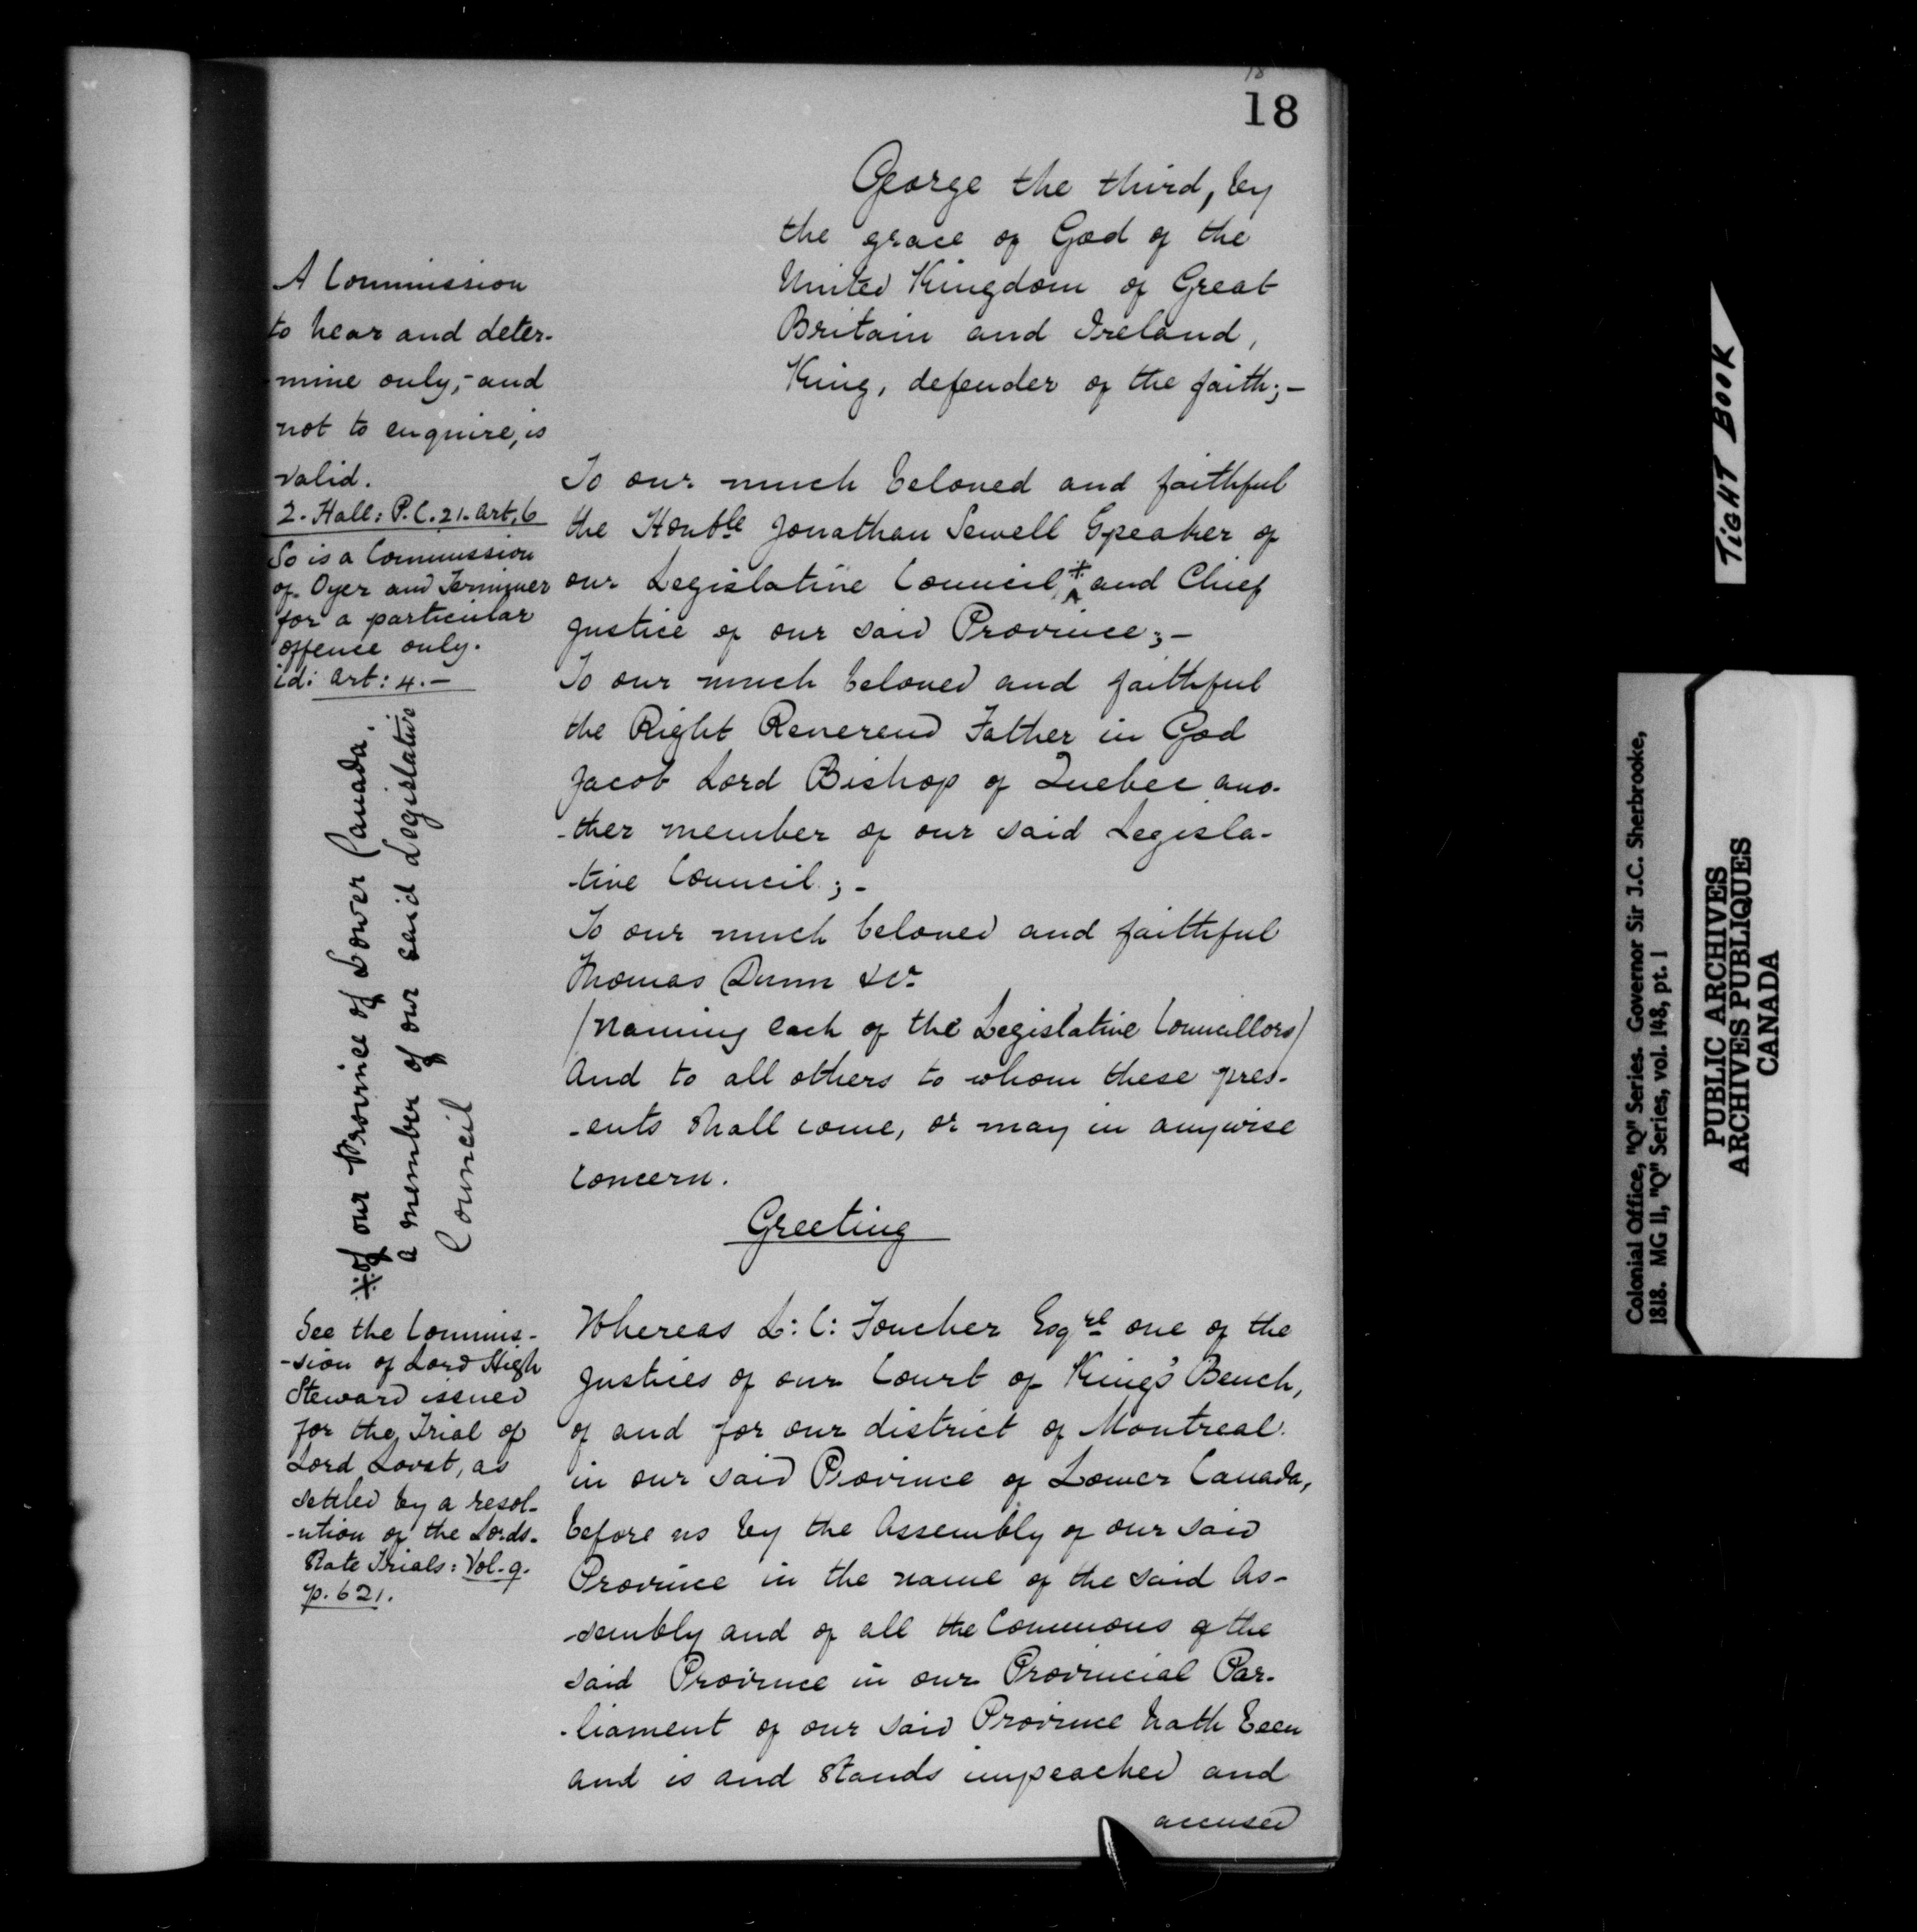 18
18
George the third, by
the grace of God of the
United Kingdom of Great
Britain and Ireland,
King, defender of the faith;-
A Commission
to hear and deter-
mine only,- and
not to enquire, is
valid.
2. Hall: P.C. 21. Art. 6
So is a Commission
of Oyer and Terminer
for a particular
offence only.
id: Art: 4.-
To our much beloved and faithful
the Honble Jonathan Sewell Speaker of
our Legislative Council, ^ and Chief
Justice of our said Province;-
To our much beloved and faithful
the Right Reverend Father in God
Jacob Lord Bishop of Quebec ano-
-ther member of our said Legisla-
-tive Council;-
To our much beloved and faithful
Thomas Dunn &cr
(Naming each of the Legislative Councillors)
And to all others to whom these pres-
-ents shall come, or may in anywise
Concern.
Greeting
of our Province of Lower Canada.
a member of our said Legislative
Council
See the Commis-
-sion of Lord High
Steward issued
for the Trial of
Lord Lovat, as
settled by a resol-
-ution of the Lords-
State Trials: Vol. 9.
p. 621.
Whereas L: C: Foucher Esqre one of the
Justices of our Court of King's Bench,
of and for our district of Montreal
in our said Province of Lower Canada,
before us by the Assembly of our said
Province in the name of the said As-
-sembly and of all the Commons of the
said Province in our Provincial Par-
-liament of our said Province hath been
and is and stands impeached and
accused
TIGHT BOOK
Colonial Office, "Q" Series. Governor Sir J.C. Sherbrooke,
1818. MG 11, "Q" Series, vol. 148, pt. 1
PUBLIC ARCHIVES
ARCHIVES PUBLIQUES
CANADA